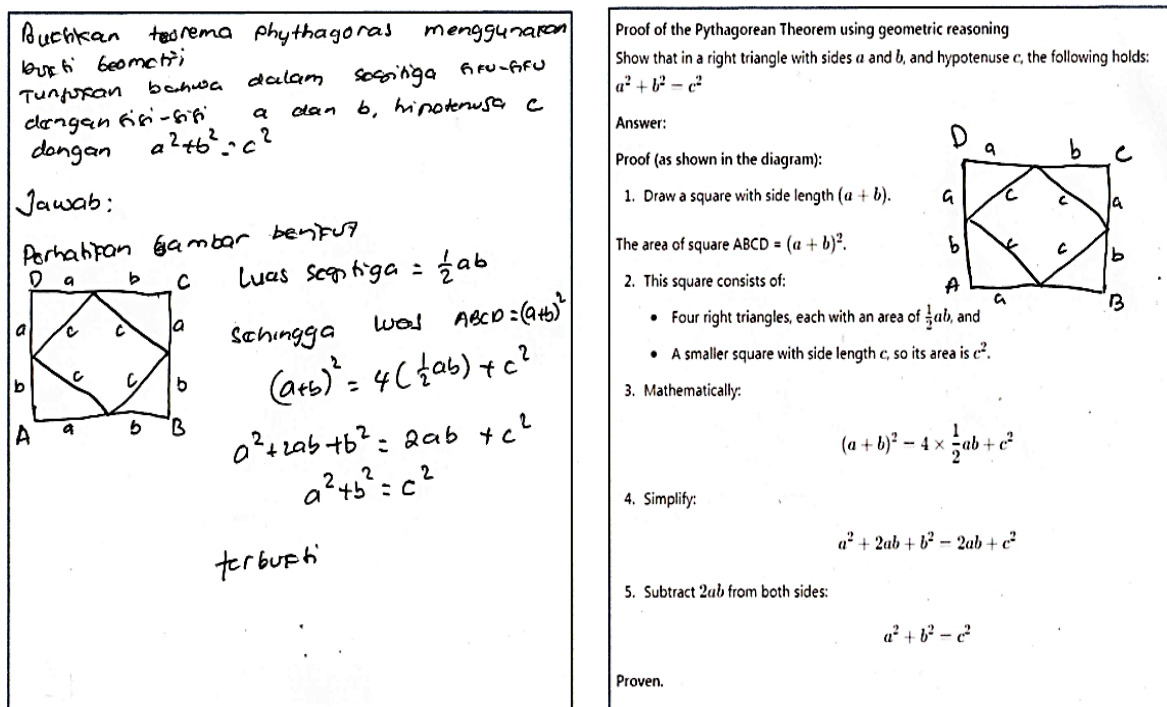 Buktikan teorema phythagoras menggunakan
bukti Geometri
Tunjukan bahwa dalam segitiga siku-siku
dengan sisi-sisi a dan b, hipotenusa c
dengan a²+b² = c²
Jawab:
Perhatikan Gambar berikut
D a b C
a c c a
b c c b
A a b B
Luas segitiga = ½ab
sehingga luas ABCD = (a+b)²
(a+b)² = 4(½ab) + c²
a²+2ab+b² = 2ab + c²
a²+b² = c²
terbukti
Proof of the Pythagorean Theorem using geometric reasoning
Show that in a right triangle with sides a and b, and hypotenuse c, the following holds:
a² + b² − c²
Answer:
Proof (as shown in the diagram):
1. Draw a square with side length (a + b).
The area of square ABCD = (a + b)².
2. This square consists of:
• Four right triangles, each with an area of ½ab, and
• A smaller square with side length c, so its area is c².
D a b C
a c c a
b c c b
A a B
3. Mathematically:
(a + b)² − 4 × ½ab + c²
4. Simplify:
a² + 2ab + b² − 2ab + c²
5. Subtract 2ab from both sides:
a² + b² − c²
Proven.